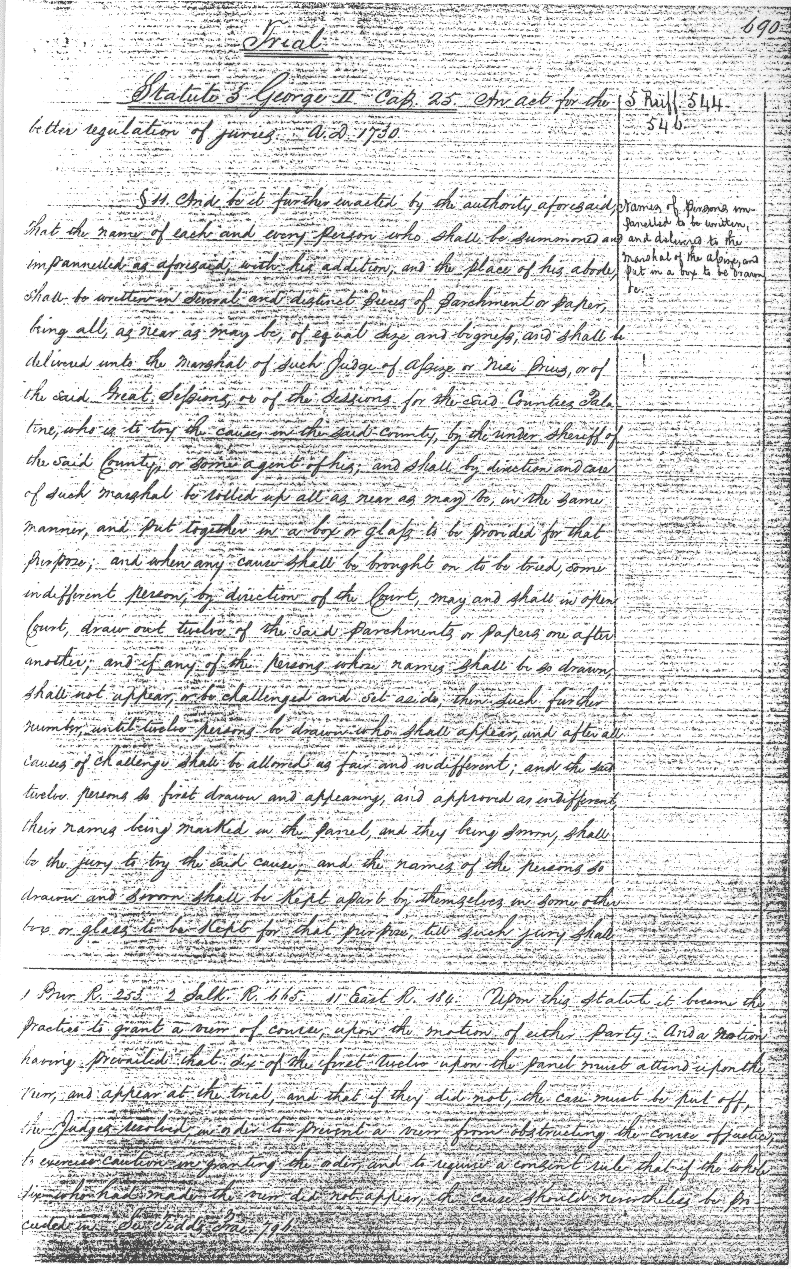 690
Trial
Statute 3 George II Cap. 25. An act for the
better regulation of juries. A.D. 1730
5 Ruff. 544.
546.
§ 11. And be it further enacted by the authority aforesaid,
That the name of each and every person who shall be summoned and
impannelled as aforesaid, with his addition, and the place of his abode,
shall be written in several and distinct pieces of parchment or paper,
being all, as near as may be, of equal size and bigness, and shall be
delivered unto the marshal of such Judge of Assize or Nisi Prius, or of
the said Great Sessions, or of the sessions for the said Counties Pala
tine, who is to try the causes in the said county, by the under sheriff of
the said County, or some agent of his; and shall by direction and care
of such marshal be rolled up all as near as may be, in the same
manner, and put together in a box or glass to be provided for that
purpose; and when any cause shall be brought on to be tried, some
indifferent person, by direction of the Court, may and shall in open
Court, draw out twelve of the said parchments or papers one after
another; and if any of the persons whose names shall be so drawn,
shall not appear, or be challenged and set aside, then such further
number, until twelve persons be drawn who shall appear, and after all
causes of challenge shall be allowed as fair and indifferent; and the said
twelve persons so first drawn and appearing, and approved as indifferent,
their names being marked in the panel, and they being sworn, shall
be the jury to try the said cause, and the names of the persons so
drawn and sworn shall be kept apart by themselves in some other
box or glass to be kept for that purpose, till such jury shall
Names of persons im-
panelled to be written,
and delivered to the
marshal of the assize, and
put in a box to be drawn
&c.
1 Bur. R. 253. 2 Salk. R. 665. 11 East R. 184. Upon this statute it became the
practice to grant a view of course, upon the motion of either party: And a notion
having prevailed that six of the first twelve upon the panel must attend upon the
view, and appear at the trial, and that if they did not, the case must be put off,
the Judges resolved, in order to prevent a view from obstructing the course of justice,
to exercise caution in granting the order, and to require a consent rule that if the whole
six who had made the view did not appear, the cause should nevertheless be pro-
ceeded in. See Tidd's Prac. 796.